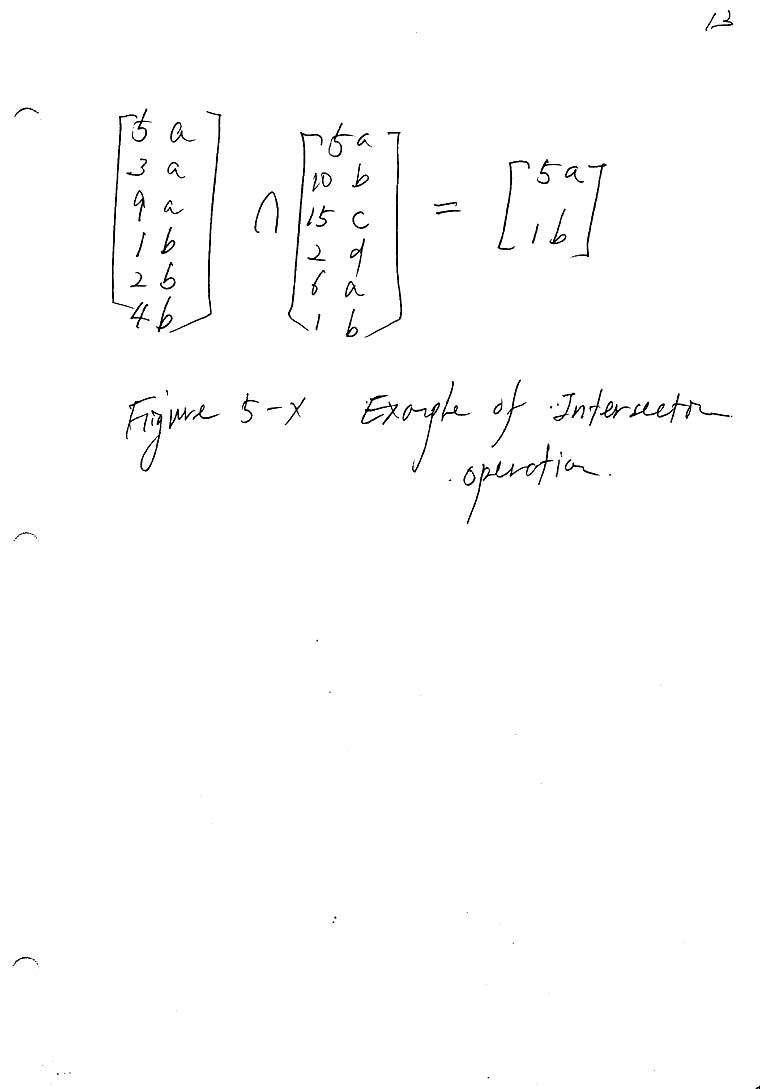 13
5 a
3 a
9 a
1 b
2 b
4 b
∩
5 a
10 b
15 c
2 d
6 a
1 b
=
5 a
1 b
Figure 5-X Example of Intersection
operation.